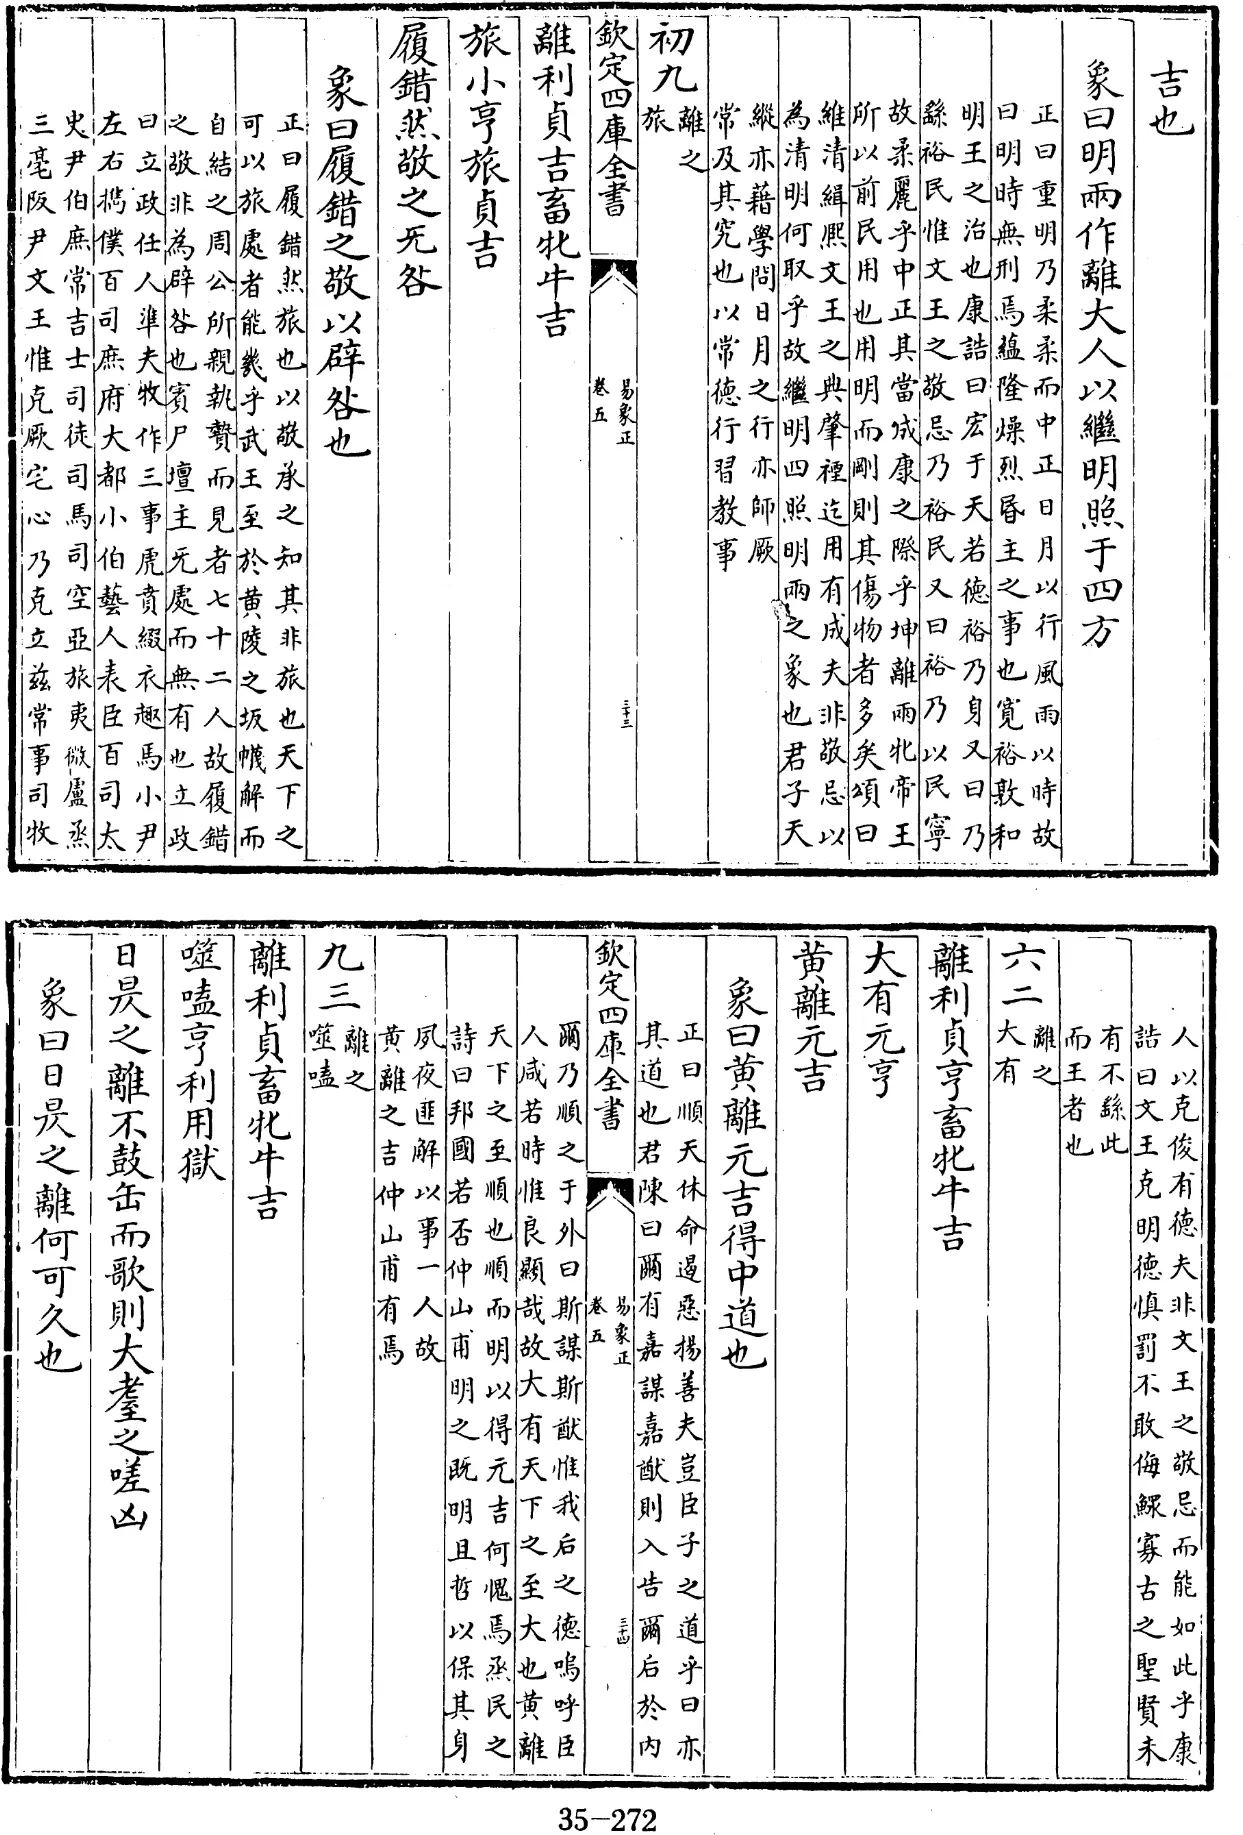 吉也
象曰明兩作離大人以繼明照于四方
正曰重明乃柔柔而中正日月以行風雨以時故
曰明時無刑焉蘊隆燥烈昬主之事也寛裕敦和
明王之治也康誥曰宏于天若德裕乃身又曰乃
繇裕民惟文王之敬忌乃裕民又曰裕乃以民寧
故柔麗乎中正其當成康之際乎坤離兩牝帝王
所以前民用也用明而剛則其傷物者多矣頌曰
維清緝熙文王之典肇禋迄用有成夫非敬忌以
為清明何取乎故繼明四照明兩之象也君子天
縱亦藉學問日月之行亦師厥
常及其究也以常德行習教事
初九
離之
旅
欽定四庫全書
易象正
卷五
三十三
離利貞吉畜牝牛吉
旅小亨旅貞吉
履錯然敬之旡咎
象曰履錯之敬以辟咎也
正曰履錯然旅也以敬承之知其非旅也天下之
可以旅處者能幾乎武王至於黄陵之坂幭解而
自結之周公所親執贄而見者七十二人故履錯
之敬非為辟咎也賓尸壇主旡處而無有也立政
曰立政任人準夫牧作三事虎賁綴衣趣馬小尹
左右攜僕百司庶府大都小伯藝人表臣百司太
史尹伯庶常吉士司徒司馬司空亞旅夷微盧烝
三亳阪尹文王惟克厥宅心乃克立兹常事司牧
人以克俊有德夫非文王之敬忌而能如此乎康
誥曰文王克明德慎罰不敢侮鰥寡古之聖賢未
有不繇此
而王者也
六二
離之
大有
離利貞亨畜牝牛吉
大有元亨
黄離元吉
象曰黄離元吉得中道也
正曰順天休命遏惡揚善夫豈臣子之道乎曰亦
其道也君陳曰爾有嘉謀嘉猷則入告爾后於内
欽定四庫全書
易象正
卷五
三十四
爾乃順之于外曰斯謀斯猷惟我后之德嗚呼臣
人咸若時惟良顯哉故大有天下之至大也黄離
天下之至順也順而明以得元吉何愧焉烝民之
詩曰邦國若否仲山甫明之既明且哲以保其身
夙夜匪解以事一人故
黄離之吉仲山甫有焉
九三
離之
噬嗑
離利貞畜牝牛吉
噬嗑亨利用獄
日昃之離不鼓缶而歌則大耋之嗟凶
象曰日昃之離何可久也
35-272